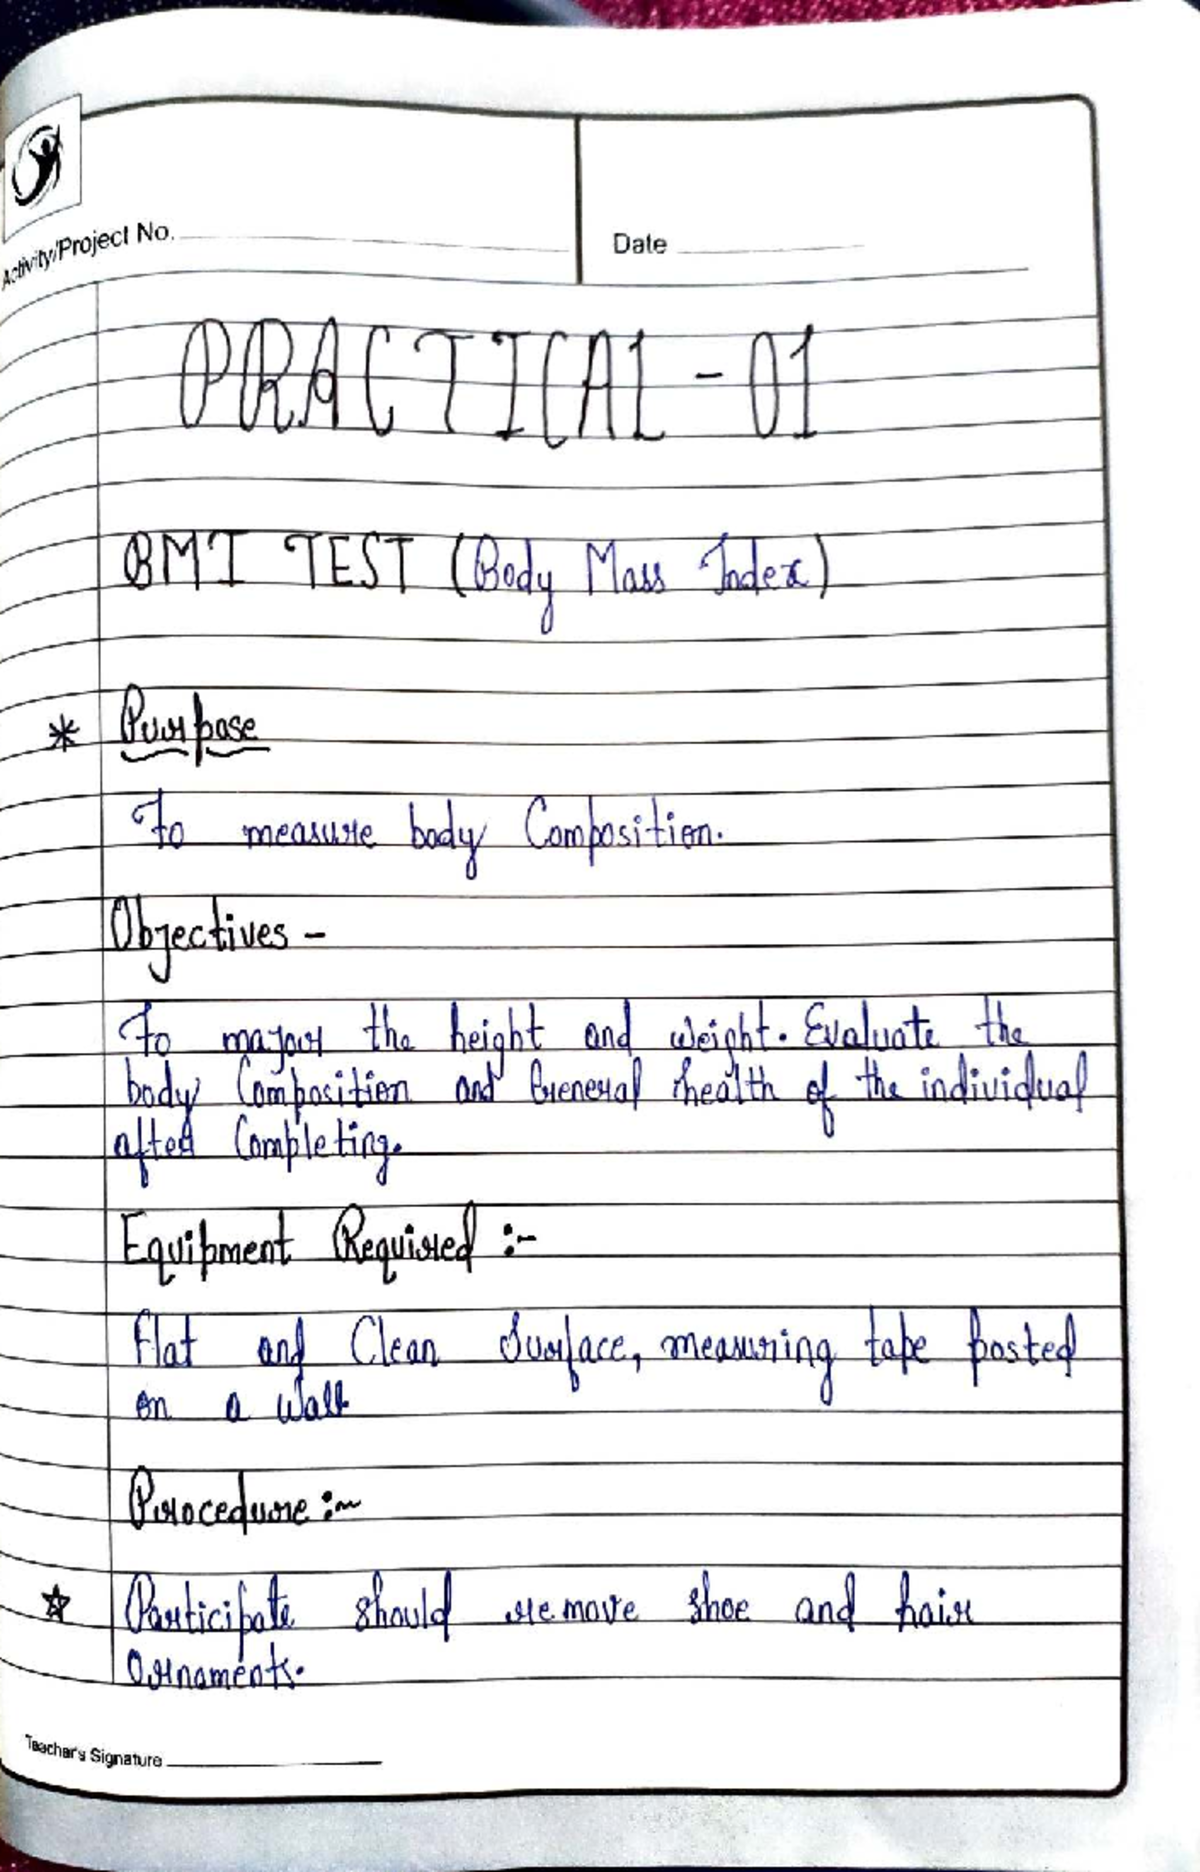 Activity/Project No.
Date
PRACTICAL - 01
BMI TEST (Body Mass Index)
* Purpose
To measure body Composition.
Objectives -
To majour the height and weight. Evaluate the
body Composition and General health of the individual
after Completing.
Equipment Required :-
flat and Clean Surface, measuring tape posted
on a wall
Procedure :-
☆ Participate should remove shoe and hair
Ornaments.
Teacher's Signature